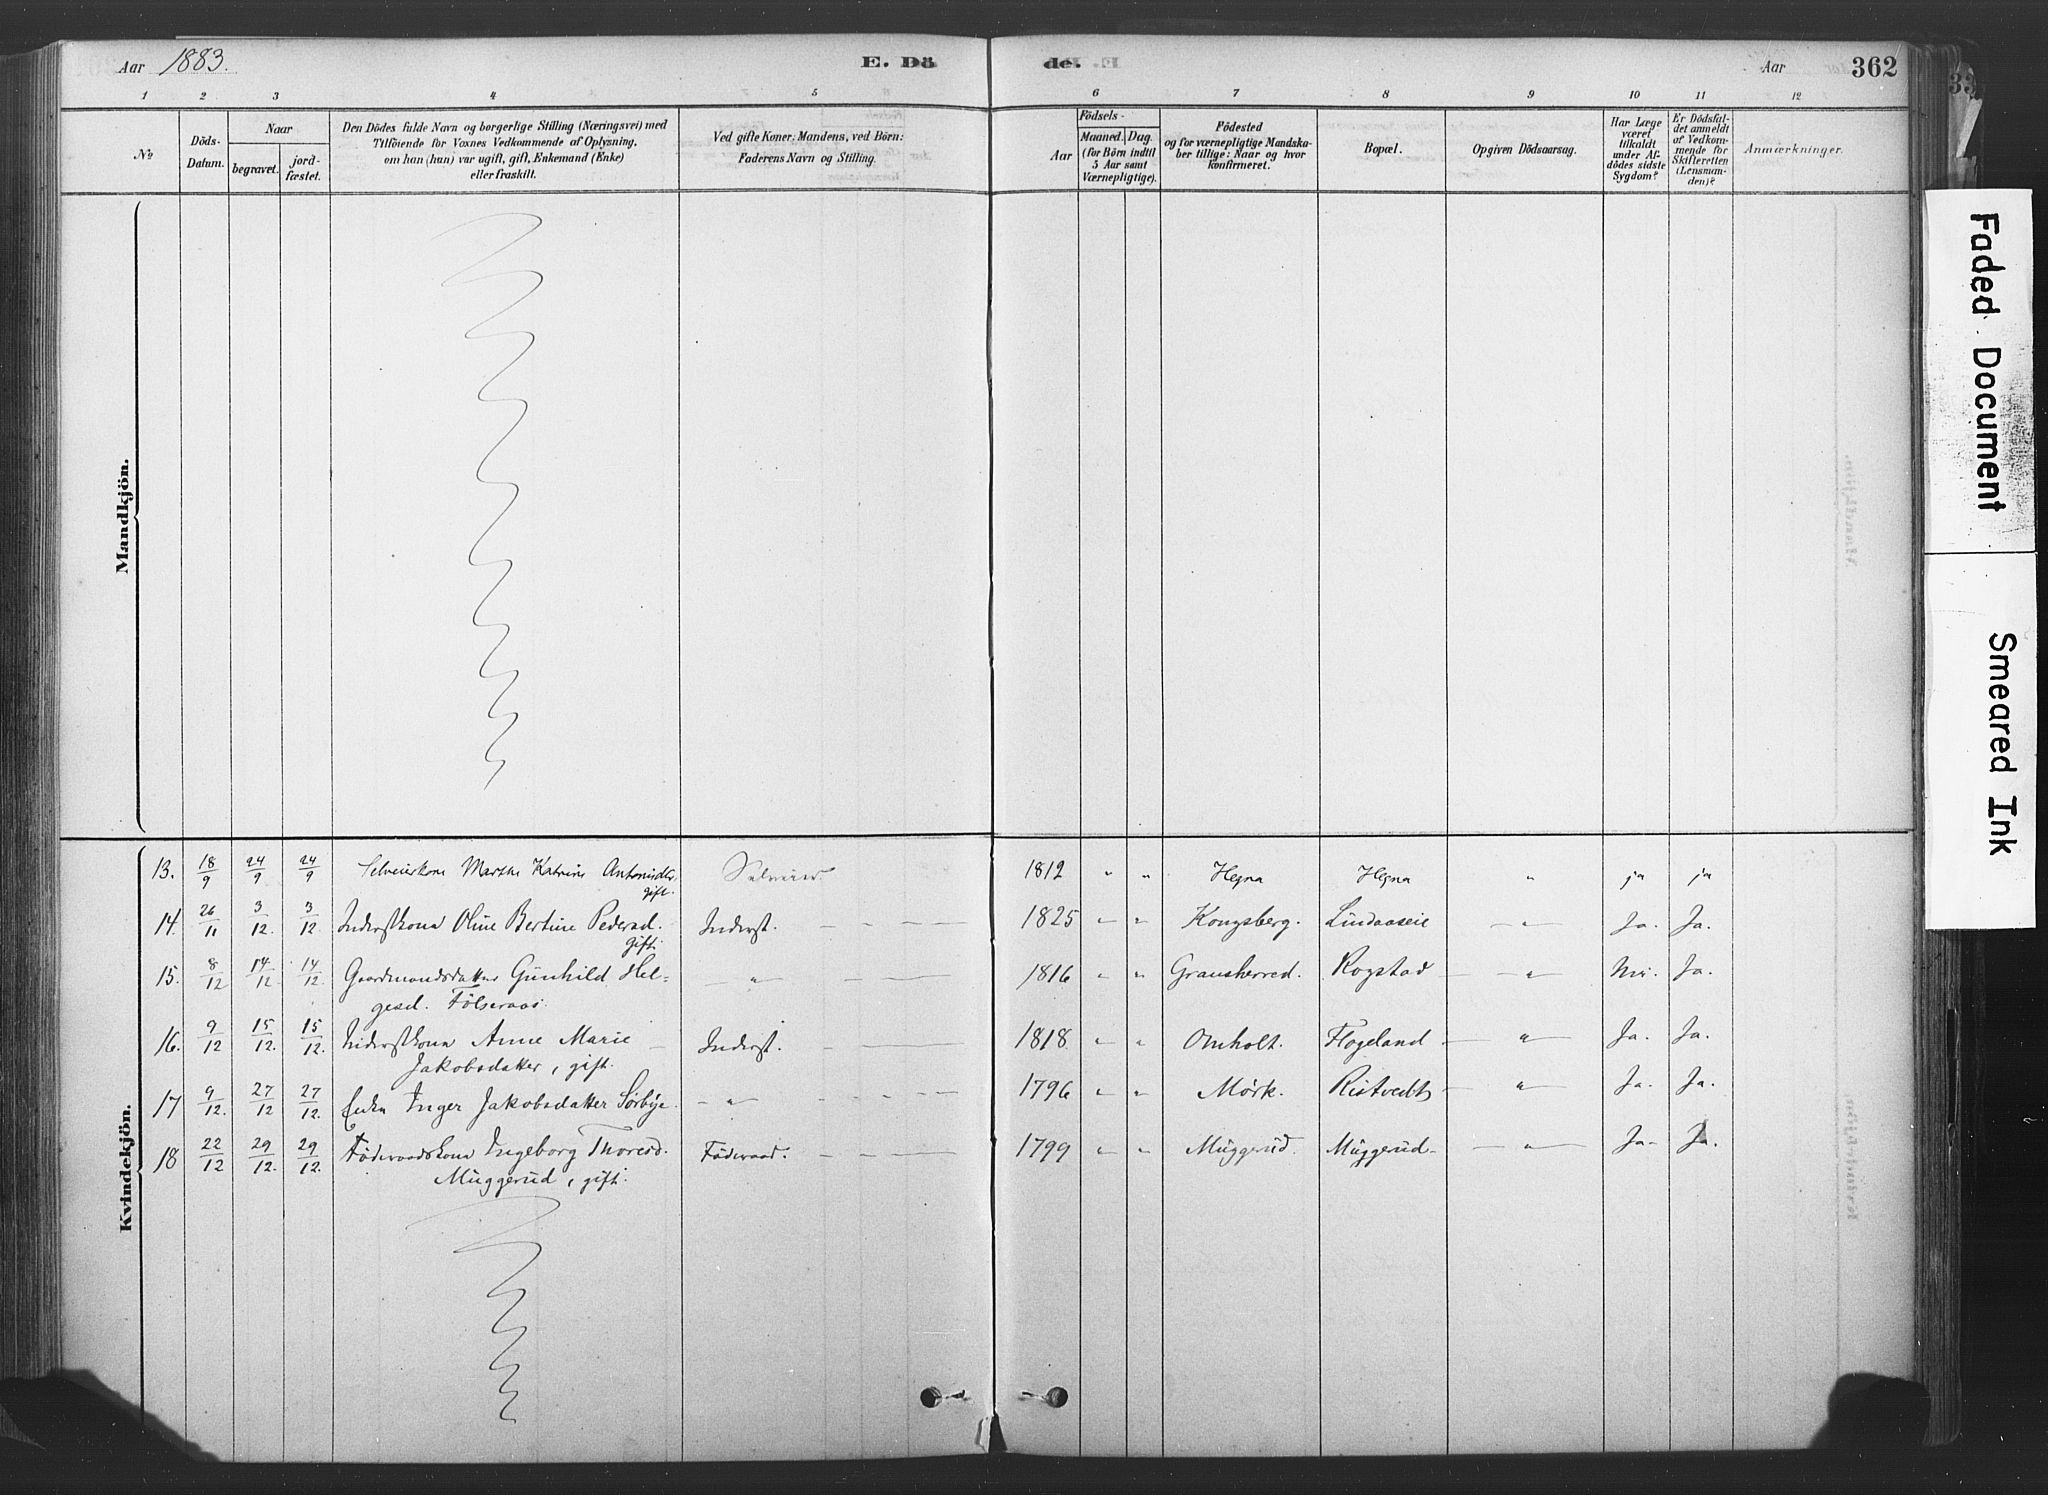 Aar 1883. E. Dö de. Aar 362
1 2 3 4 5 6 7 8 9 10 11 12
No
Döds-
Datum.
Naar
begravet.
jord-
fæstet.
Den Dödes fulde Navn og borgerlige Stilling (Næringsvei) med
Tilföiende for Voxnes Vedkommende af Oplysning,
om han (hun) var ugift, gift, Enkemand (Enke)
eller fraskilt.
Ved gifte Koner: Mandens, ved Börn:
Faderens Navn og Stilling.
Födsels-
Aar
Maaned. Dag.
(for Börn indtil
5 Aar samt
Værnepligtige).
Födested
og for værnepligtige Mandska-
ber tillige: Naar og hvor
konfirmeret.
Bopæl.
Opgiven Dödsaarsag.
Har Læge
været
tilkaldt
under Af-
dödes sidste
Sygdom?
Er Dödsfal-
det anmeldt
af Vedkom-
mende for
Skifteretten
(Lensman-
den)?
Anmærkninger.
Mandkjön.
Kvindekjön.
13. 18/9 24/9 24/9 Selveierkone Marthe Katrine Antonidtr. Selveier 1812 " " Hegna Hegna " ja ja
gift.
14. 26/11 3/12. 3/12 Inderstkona Oline Bertine Pedersd. Inderst. — - — — 1825 " " Kongsberg. Lindaaseie — " — Ja. Ja.
gift.
15. 8/12 14/12. 14/12. Gaardmandsdatter Gunhild Hel- — " — — — — 1816 " " Gransherred. Rogstad — " — Nei. Ja.
gesd. Fölseraas.
16. 9/12 15/12. 15/12. Inderstkona Anne Marie — Inderst. - — — — 1818 " " Omholt. Flogeland — " — Ja. Ja.
Jakobsdatter, gift.
17 9/12. 27/12 27/12. Enka Inger Jakobsdatter Sørbye. — " — - - — 1796 " " Mørk. Ristvedt — " — Ja. Ja.
18 22/12 29/12. 29/12. Föderaadskona Ingeborg Thoresd. Föderaad. — — — — 1799 " " Muggerud. Muggerud — " — Ja- Ja.
Muggerud, gift.
Faded Document
Smeared Ink